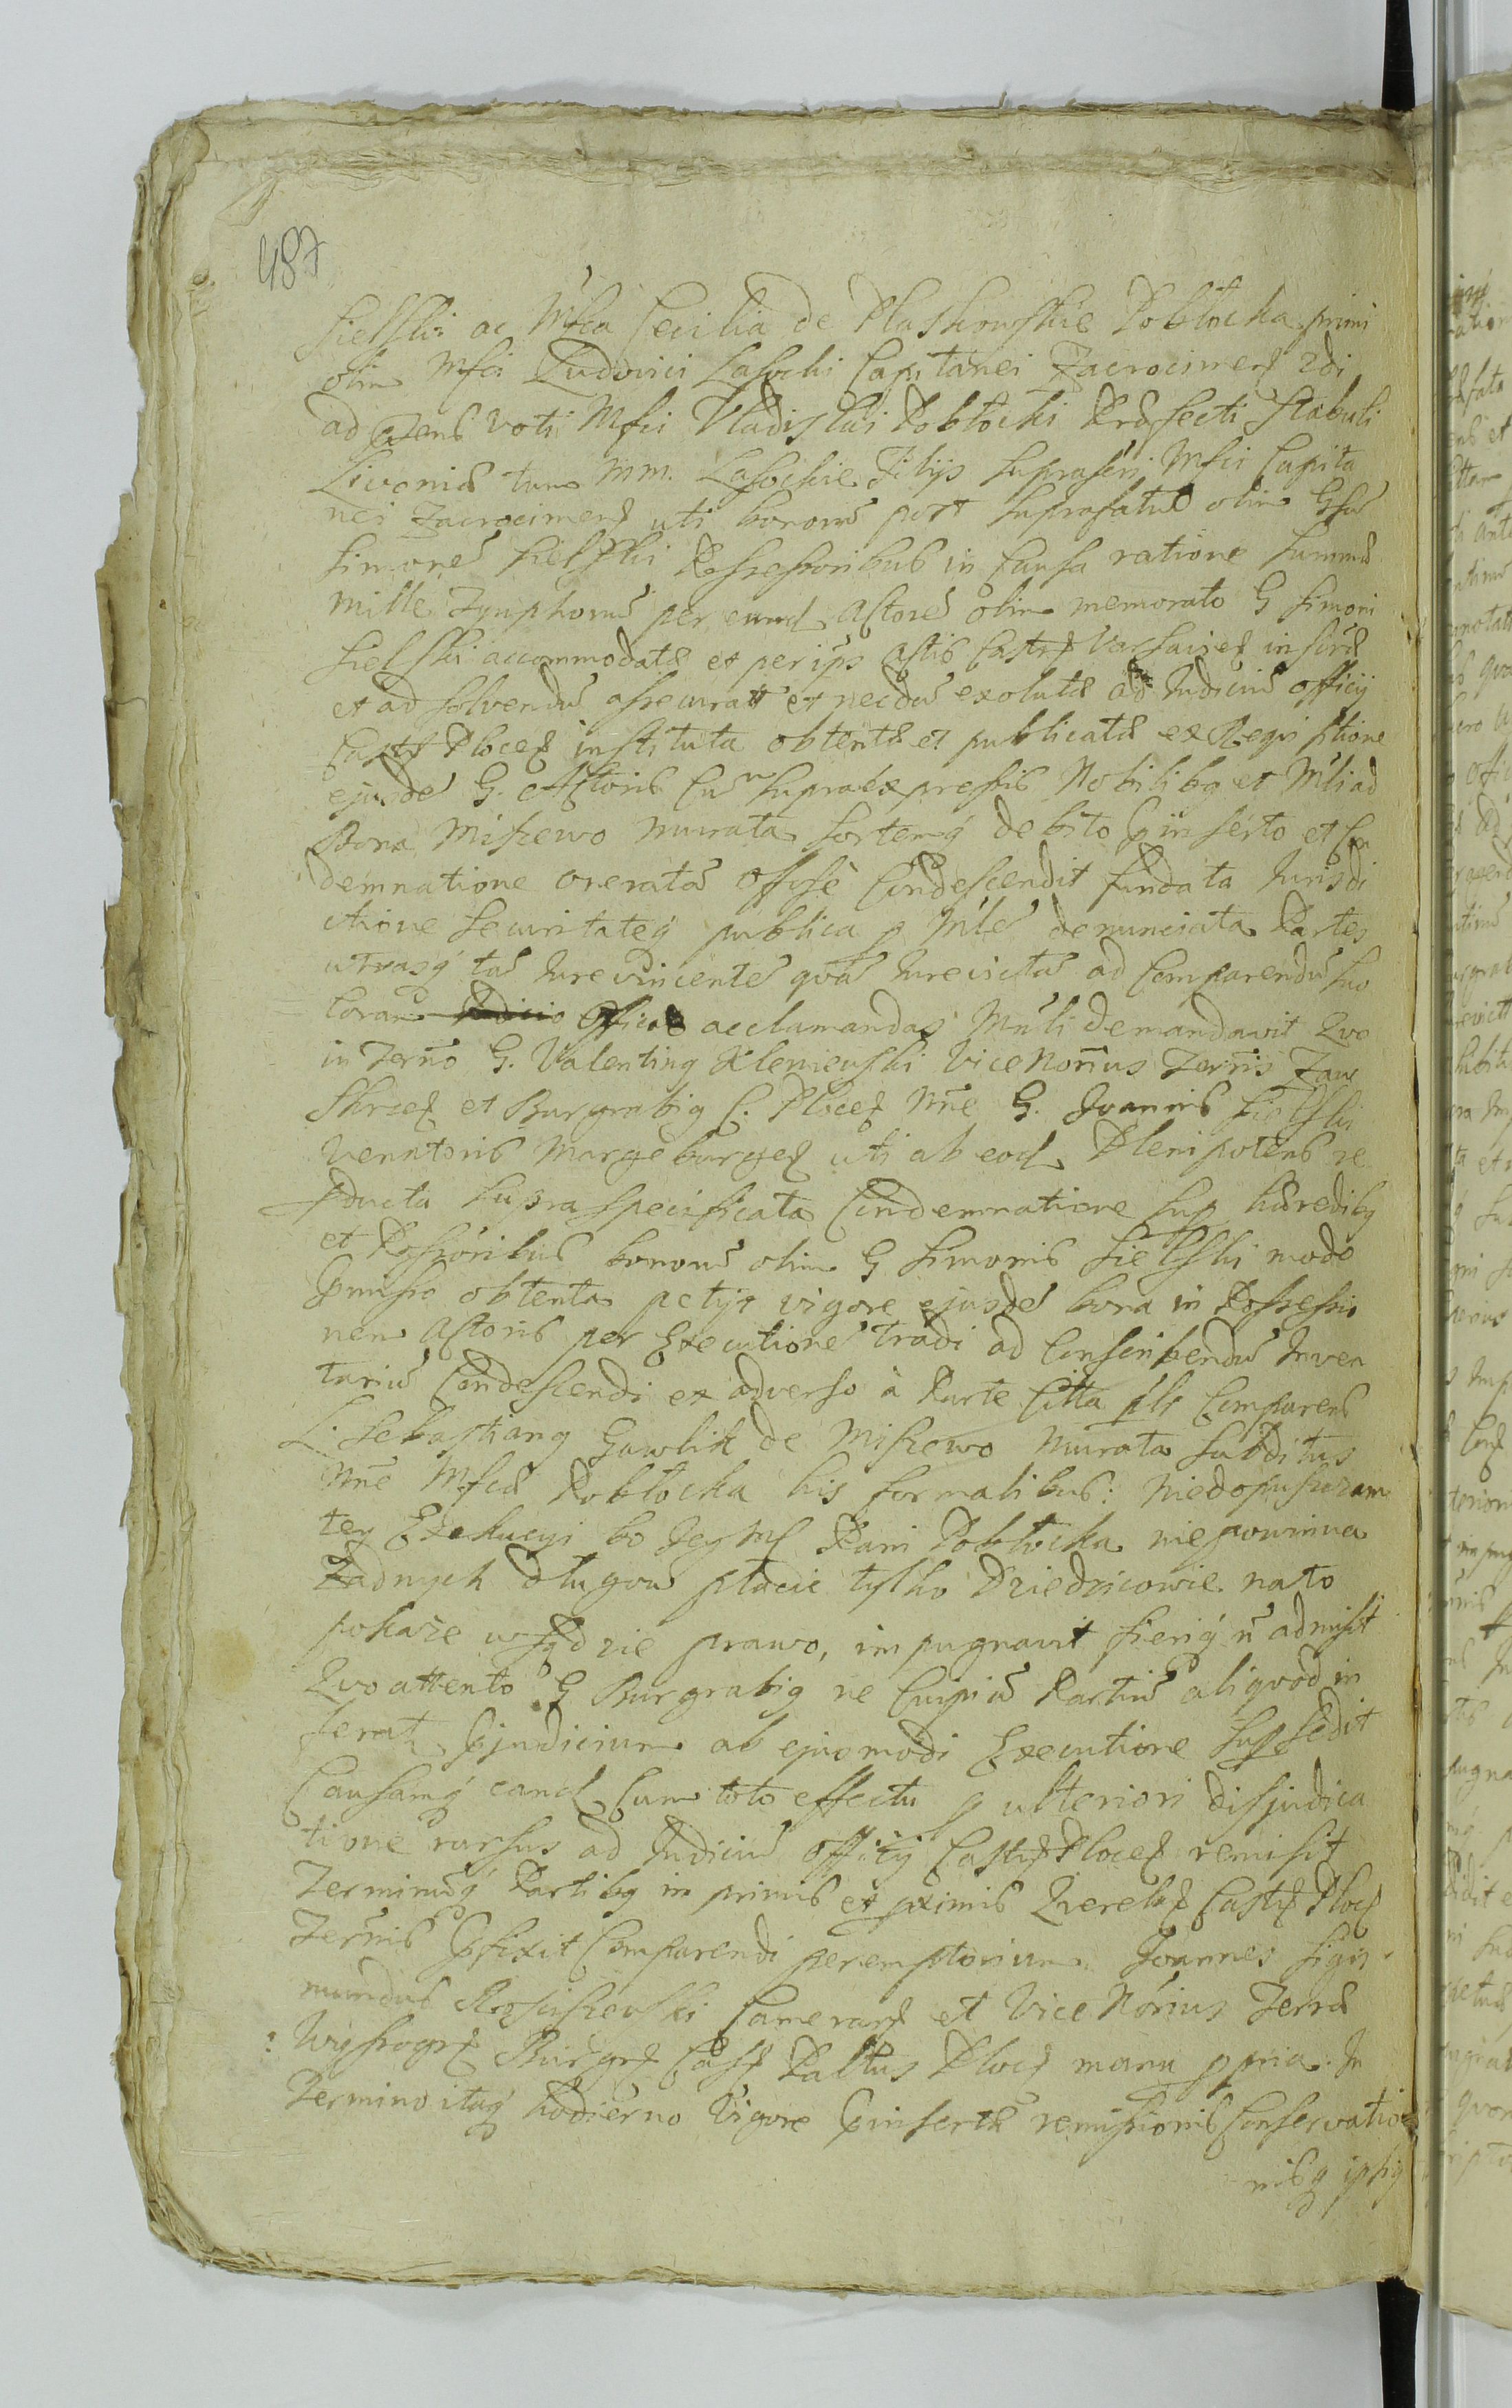 487
Sielski ac Mfca Cecilia de Plaskowskie Pobłocka primi
olim Mfci Ludovici Lasocki Capitanei Zacrocimen 2di
ad voti Mfci Vladislai Pobłocki Præfecti Stabuli
Livoniæ tum MM. Lasockie Filijs suprascri Mfci Capita
nei Zacrocimen uti bonorū post suprafatū olim Gsū
Simonē Sielski Possessoribus in Causa ratione summæ
mille Tynphorū per eund Actorē olim memorato G Simoni
Sielski accommodatæ et per ips Actis Castr Varsavien inscrā
et ad solvendū assecurat et necdū exolutæ ad Judiciū officij
Castr Plocen instituta obtentæ et publicatæ ex Reqistione
ejusdē G. Actoris Cū supraexpressis Nobilibq et Mtli ad
Bona Miszewo Murata sortemq debito Pinserto et Con
demnatione oneratā Offise Condescendit fundata Jurisdi
ctione Securitateq publica p Mtlē denunciata Partes
utrasq tā Jurevincentē qvā Jurevictā ad Comparendū suo
Coram Officio acclamandas Mtli demandavit Qvo
in Terno G. Valentinq Kleniewski Vice Norius Terris Zaw
Skrzen et Burgrabiq C. Plocen Nne G. Joannis Sielski
Venatoris Margeburgen uti ab eod Plenipotens re
pducta supra specificata Condemnatione sup hæredibq
et Possoribus bonorū olim G Simonis Sielski modo
Pmisso obtenta petijt vigore ejusdē bona in Possessio
nem Actoris per Executionē tradi ad Conscribendū Inven
tariū Condescendi ex adverso à Parte Citta plr Comparens
L. Sebastianq Gawlik de Miszewo Murata Subditus
Nne Mfcæ Pobłocka his formalibus: Niedopuszczam
tey Exekucyi bo Jey M Pani Pobłocka niepowinna
Zadnych długow płacic tylko Dziedzicowie na to
pokaże w sądzie prawo, impugnavit fieriq ñ admisit
Qvo attento G Burgrabiq ne Cuipiā Partiū aliqvod in
ferat Pjudicium ab ejusmodi Executione supsedit
Causamq eand Cum toto effectu p ulteriori disjudica
tione rursus ad Judiciū officij Castr Plocen remisit
Terminūq Partibq in primis et pximis Qverelis Castr Ploc
Ternis Pfixit Comparendi peremptorium. Joannes Sigis
mundus Rosciszewski Camerar et Vice Nörius Terræ
Wyszogr Burgr Cas Paltus Ploc manu ppria. In
Termino itaq hodierno Vigore Pinsertæ remissionis Conservatio
nisq ipsiq